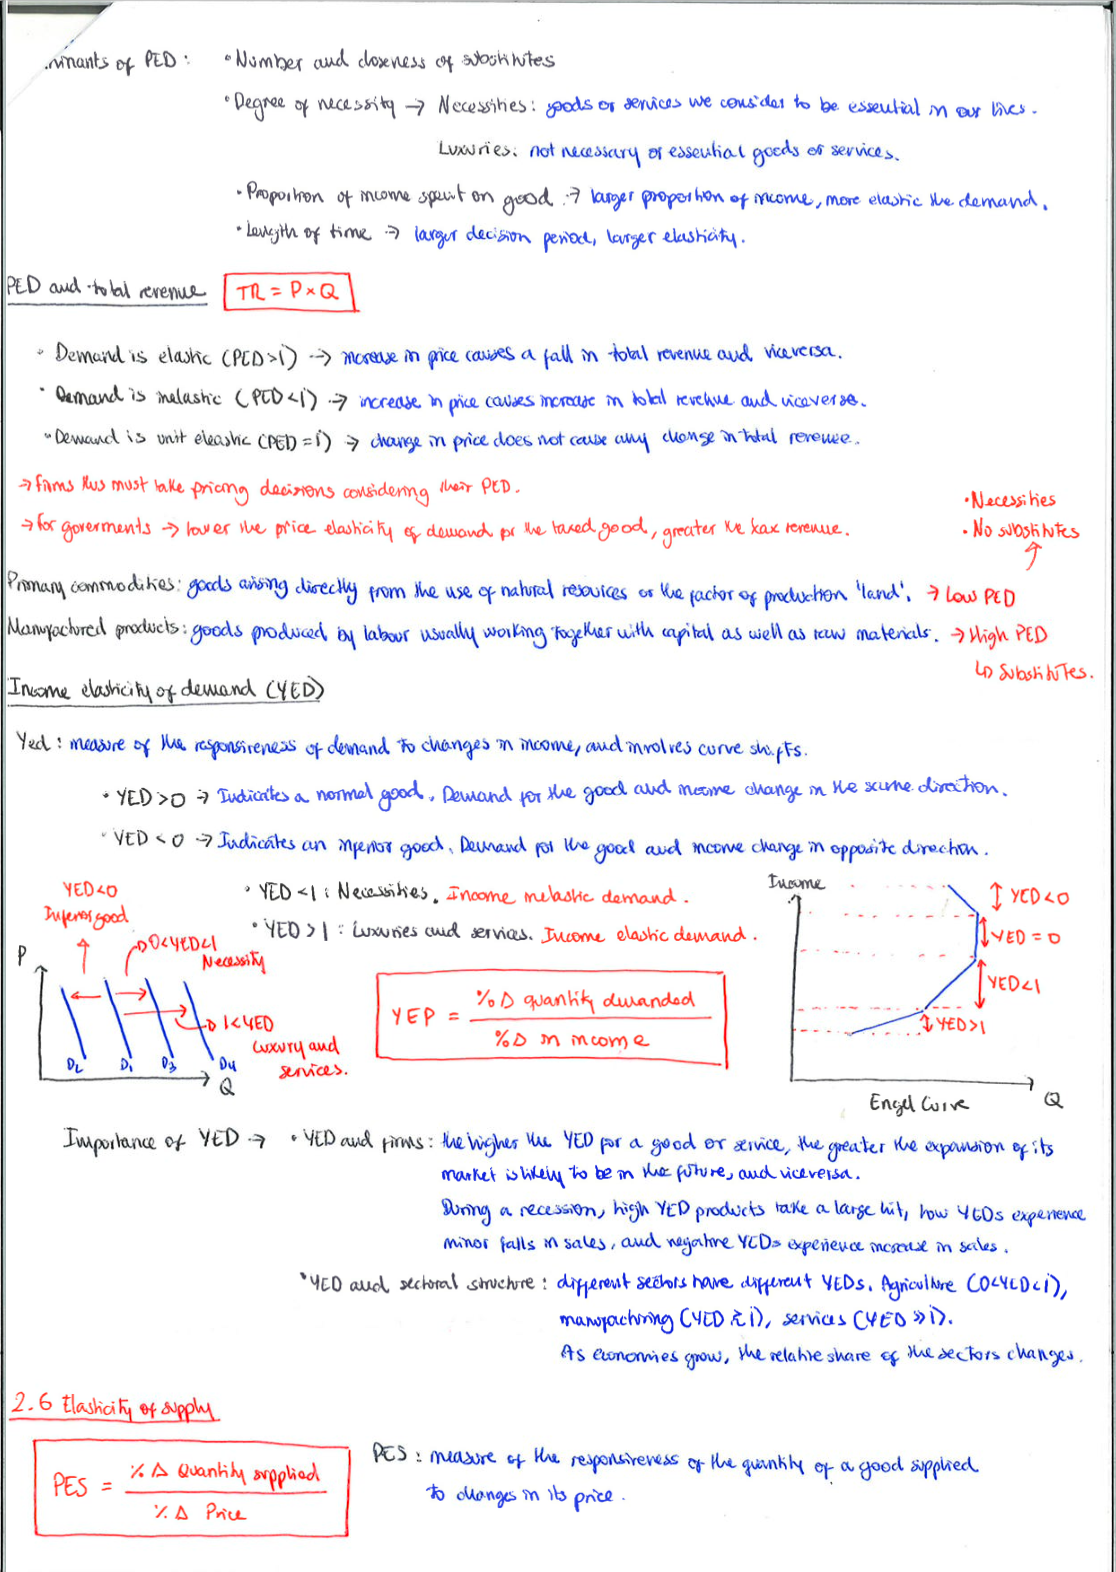 minants of PED: • Number and closeness of substitutes
• Degree of necessity → Necessities: goods or services we consider to be essential in our lives.
Luxuries: not necessary or essential goods or services.
• Proportion of income spent on good → larger proportion of income, more elastic the demand.
• Length of time → larger decision period, larger elasticity.
PED and total revenue TR = P×Q
• Demand is elastic (PED>1) → increase in price causes a fall in total revenue and viceversa.
• Demand is inelastic (PED<1) → increase in price causes increase in total revenue and viceversa.
• Demand is unit eleastic (PED=1) → change in price does not cause any change in total revenue.
→ firms thus must take pricing decisions considering their PED.
→ for goverments → lower the price elasticity of demand for the taxed good, greater the tax revenue.
• Necessities
• No substitutes
Primary commodities: goods arising directly from the use of natural resources or the factor of production 'land'. → Low PED
Manufactured products: goods produced by labour usually working together with capital as well as raw materials. → High PED
↳ Substitutes.
Income elasticity of demand (YED)
Yed: measure of the responsiveness of demand to changes in income, and involves curve shifts.
• YED>0 → Indicates a normal good. Demand for the good and income change in the same direction.
• YED<0 → Indicates an inferior good. Demand for the good and income change in opposite direction.
• YED<1: Necessities. Income inelastic demand.
• YED>1: Luxuries and services. Income elastic demand.
YED<0
Inferior good
0<YED<1
Necessity
P
1<YED
Luxury and
services.
D2 D1 D3 D4
Q
YEP = %Δ quantity demanded
%Δ in income
Income
YED<0
YED=0
YED<1
YED>1
Engel Curve Q
Importance of YED → • YED and firms: the higher the YED for a good or service, the greater the expansion of its
market is likely to be in the future, and viceversa.
During a recession, high YED products take a large hit, low YEDs experience
minor falls in sales, and negative YEDs experience increase in sales.
• YED and sectoral structure: different sectors have different YEDs. Agriculture (0<YED<1),
manufacturing (YED ≥ 1), services (YED >> 1).
As economies grow, the relative share of the sectors changes.
2.6 Elasticity of supply
PES = %Δ Quantity supplied
%Δ Price
PES: measure of the responsiveness of the quantity of a good supplied
to changes in its price.